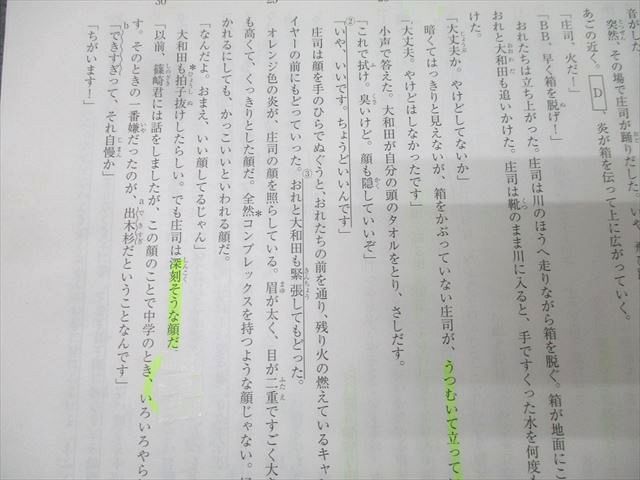 突然、その場で庄司が踊りだした。
あごの近く。 D 、炎が箱を伝って上に広がっていく。
「庄司、火だ！」
「ＢＢ、早く箱を脱げ！」
おれたちは立ち上がった。庄司は川のほうへ走りながら箱を脱ぐ。箱が地面にこ
おれと大和田も追いかけた。庄司は靴のまま川に入ると、手ですくった水を何度も
けた。
「大丈夫か。やけどしてないか」
暗くてはっきりと見えないが、箱をかぶっていない庄司が、うつむいて立って
「大丈夫。やけどはしなかったです」
小声で答えた。大和田が自分の頭のタオルをとり、さしだす。
「これで拭け。臭いけど。顔も隠していいぞ」
②「いや、いいです。ちょうどいいんです」
庄司は顔を手のひらでぬぐうと、おれたちの前を通り、残り火の燃えているキャ
イヤーの前にもどっていった。③おれと大和田も緊張してもどった。
オレンジ色の炎が、庄司の顔を照らしている。眉が太く、目が二重ですごく大
も高くて、くっきりとした顔だ。全然＊コンプレックスを持つような顔じゃない。
かれるにしても、かっこいいといわれる顔だ。
「なんだよ。おまえ、いい顔してるじゃん」
大和田も＊拍子抜けしたらしい。でも庄司は深刻そうな顔だ
「以前、篠崎君には話をしましたが、この顔のことで中学のとき、いろいろやら
す。そのときの一番嫌だったのが、a出木杉だということなんです」
「bできすぎって、それ自慢か」
「ちがいます！」
25
30